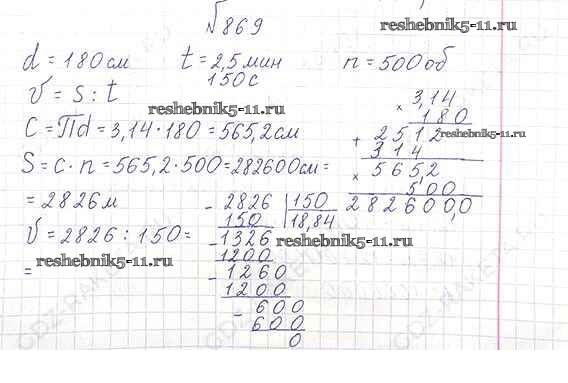 №869
reshebnik5-11.ru
d = 180 см t = 2,5 мин n = 500 об
150 с
v = s : t
reshebnik5-11.ru
C = Пd = 3,14 · 180 = 565,2 см
S = c · n = 565,2 · 500 = 282600 см =
= 2826 м
v = 2826 : 150 =
=
reshebnik5-11.ru
× 3,14
180
+ 2512
reshebnik5-11.ru
314
× 565,2
500
282600,0
- 2826 | 150
150 | 18,84
- 1326
reshebnik5-11.ru
1200
- 1260
1200
- 600
600
0